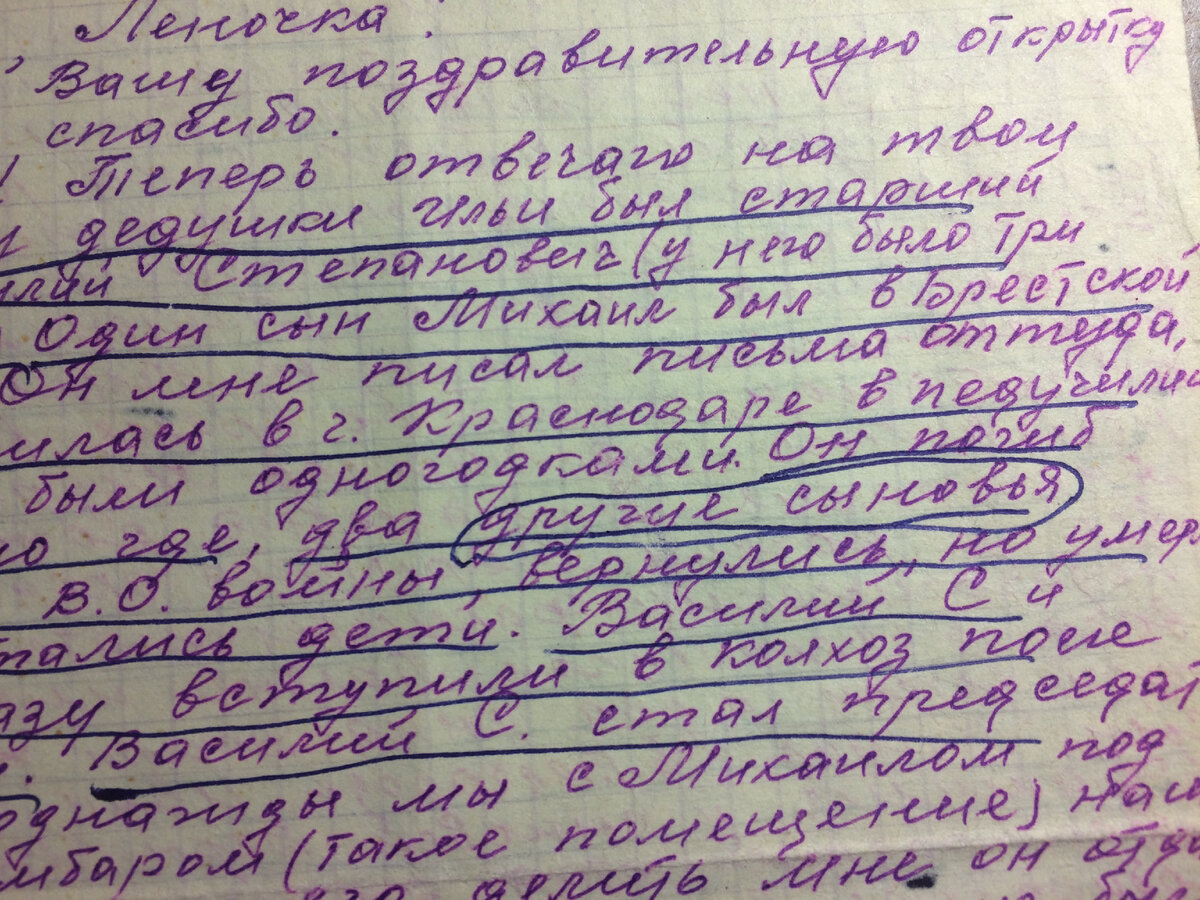 Леночка!
Вашу поздравительную открытку
спасибо.
! Теперь отвечаю на твои
у дедушки Ильи был старший
илий Степанович (у него было три
Один сын Михаил был в Брестской
Он мне писал письма оттуда,
илась в г. Краснодаре в педучили
были одногодками. Он погиб
но где, два другие сыновья
В.О. войны, вернулись, но умер
тались дети. Василий С и
азу вступили в колхоз после
Василий С. стал председат
однажды мы с Михаилом под
мбаром (такое помещение) наш
делить мне он отда